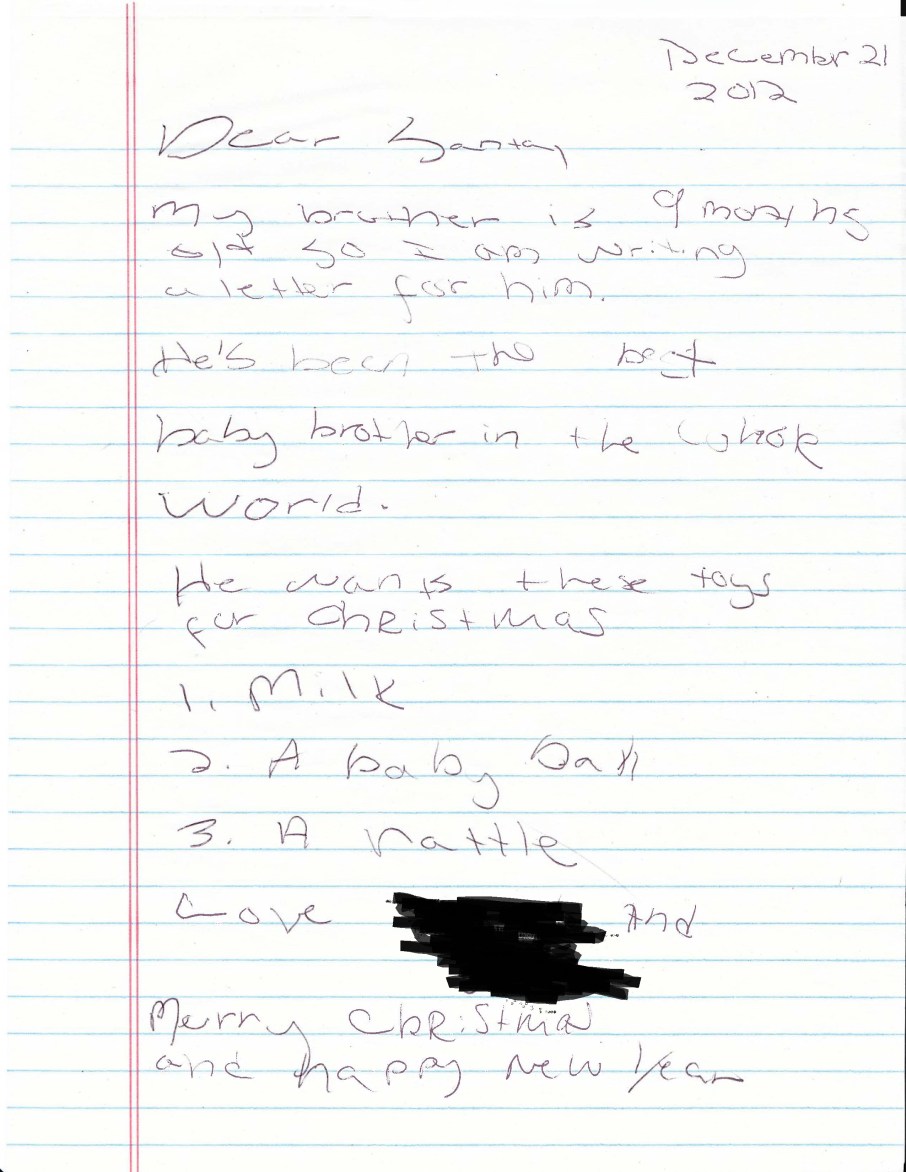 December 21
2012
Dear Santa,
My brother is 9 months
old so I am writing
a letter for him.
He's been the best
baby brother in the whole
world.
He wants these toys
for ChRistmas
1. Milk
2. A baby ball
3. A rattle
Love And
Merry ChRistmas
and happy New Year